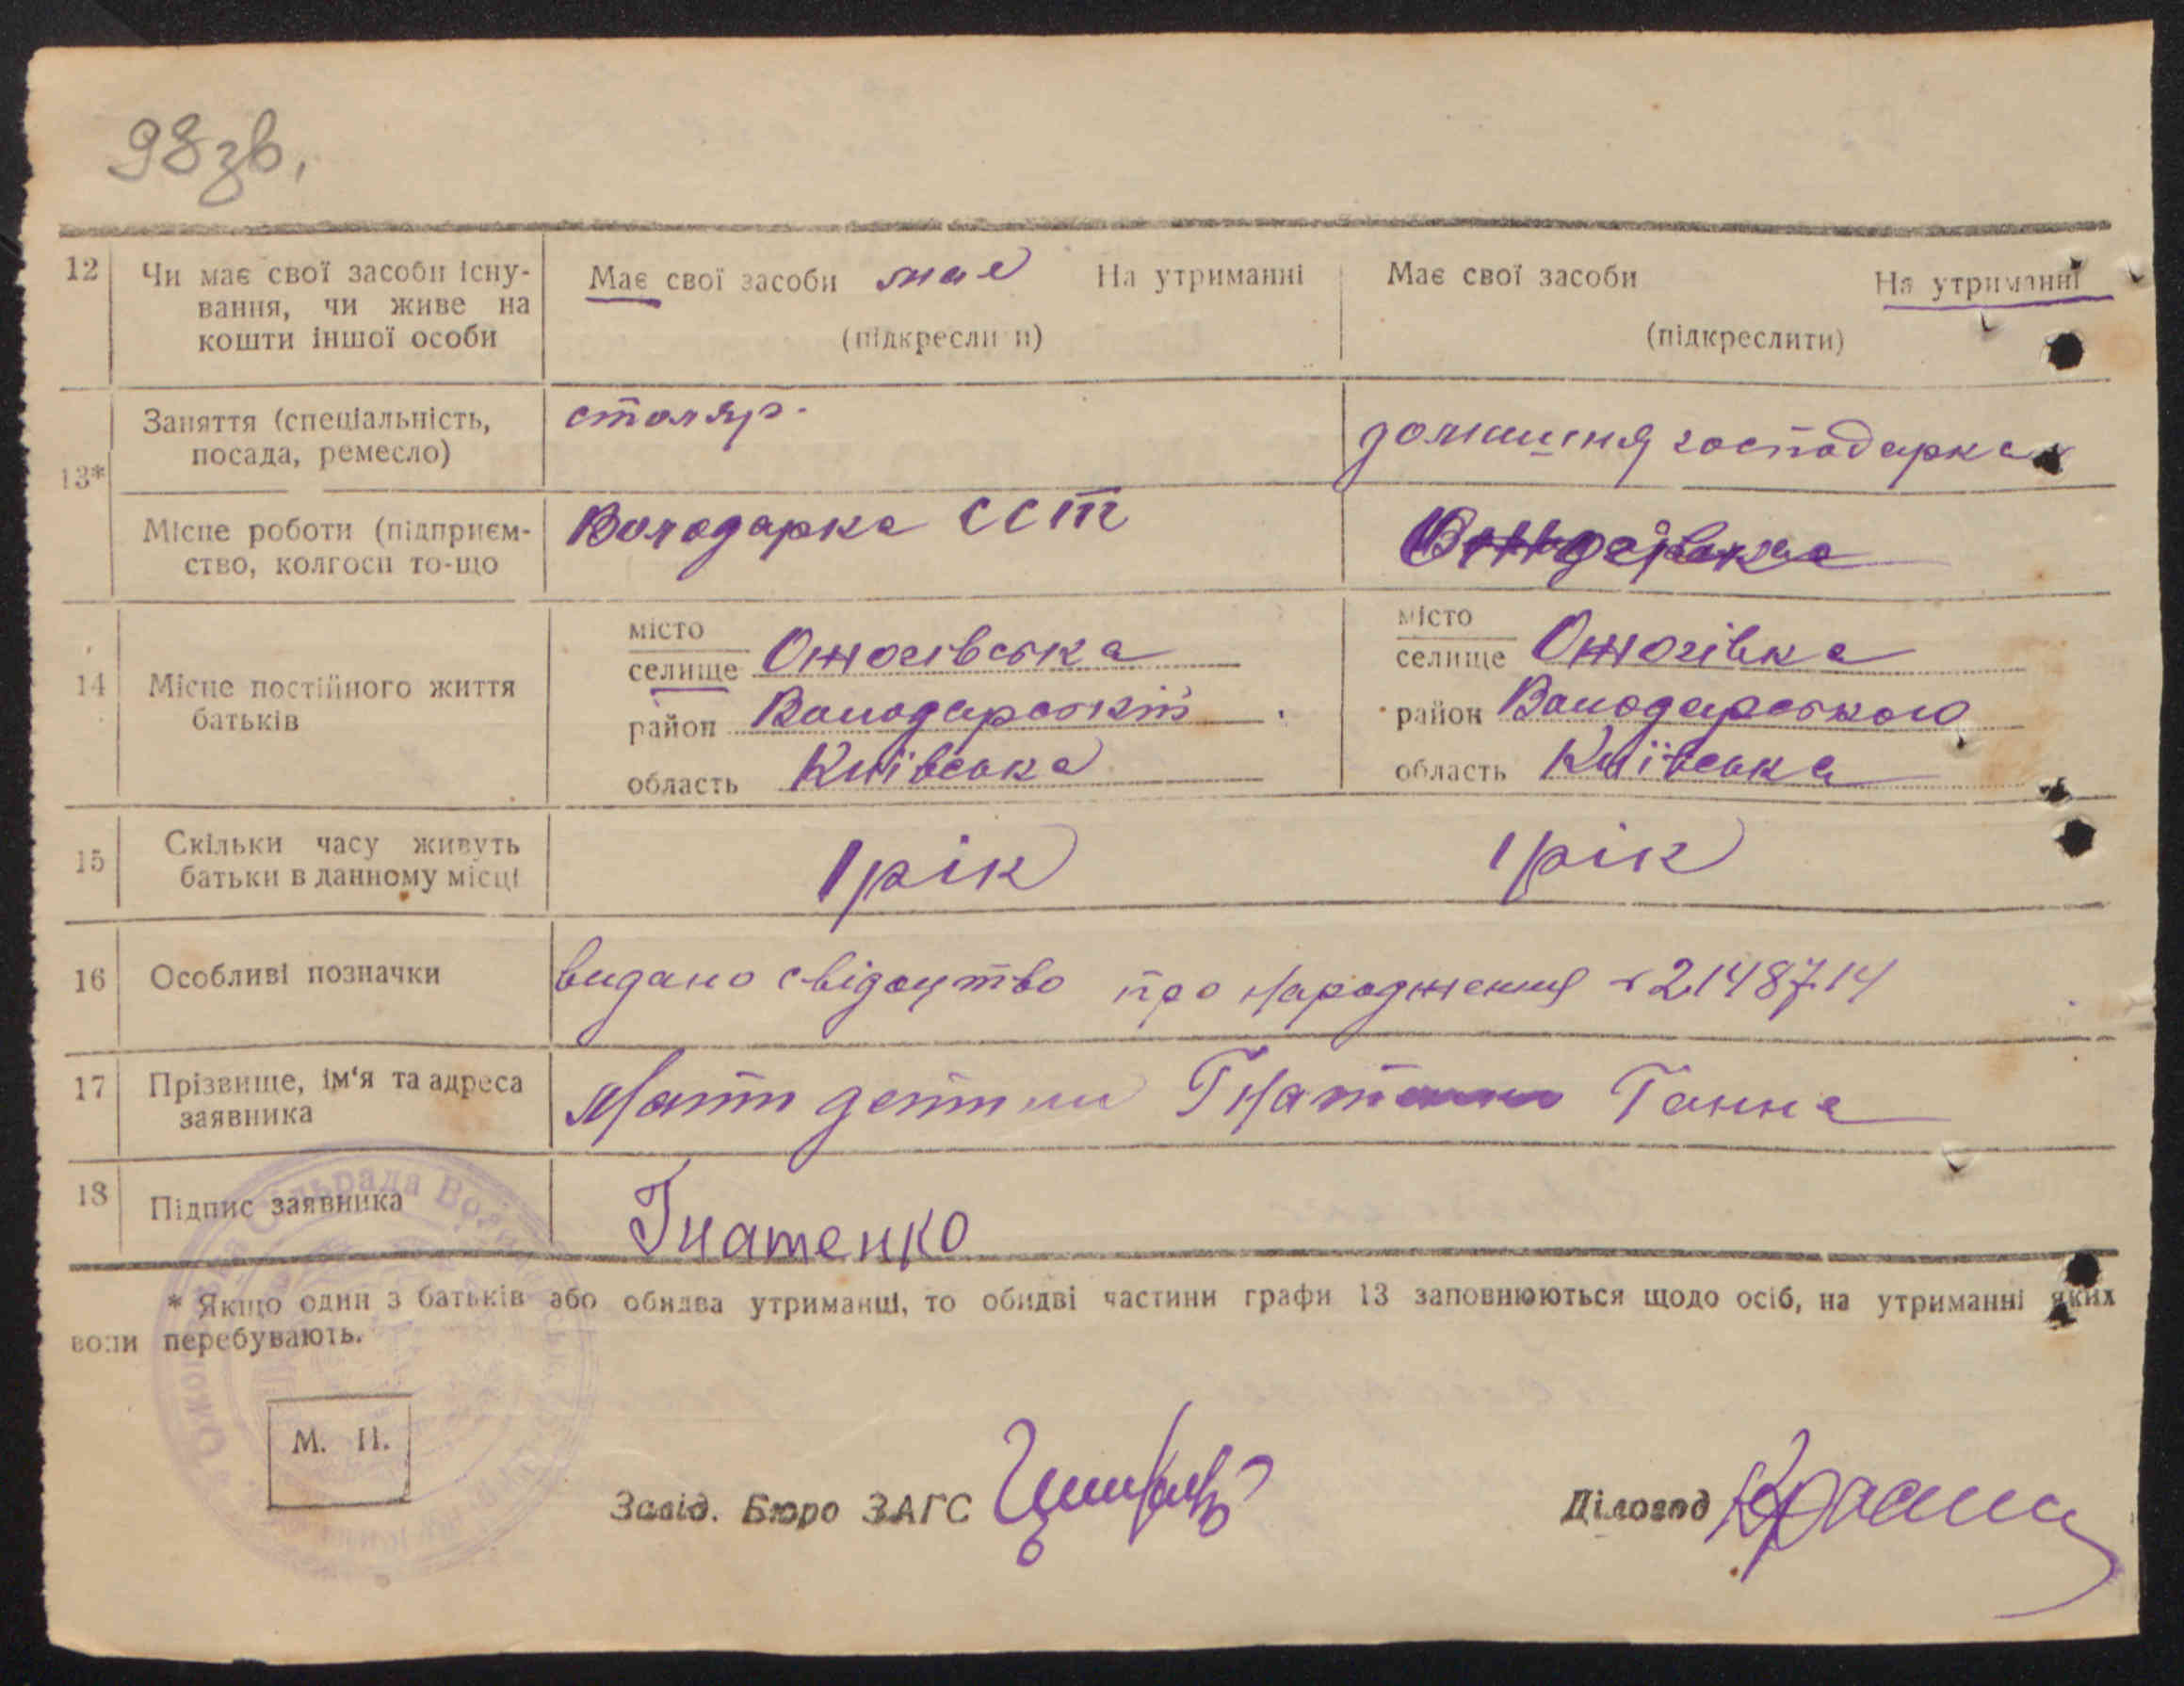 98 зв.
12 Чи має свої засоби існу- Має свої засоби має На утриманні Має свої засоби На утриманні
вання, чи живе на
кошти іншої особи (підкреслити) (підкреслити)
13* Заняття (спеціальність, столяр. домашня господарка
посада, ремесло)
Місце роботи (підприєм- Володарка ССТ
ство, колгосп то-що
14 Місце постійного життя
батьків
місто місто
селище Ожогівська селище Ожогівка
район Володарський район Володарського
область Київська область Київська
15 Скільки часу живуть 1 рік 1 рік
батьки в данному місці
16 Особливі позначки видано свідоцтво про народження 2148714
17 Прізвище, ім'я та адреса Мати дитини Гнатенко Ганна
заявника
18 Підпис заявника Гнатенко
* Якщо один з батьків або обидва утриманці, то обидві частини графи 13 заповнюються щодо осіб, на утриманні яких
вони перебувають.
М. П.
Завід. Бюро ЗАГС Діловод